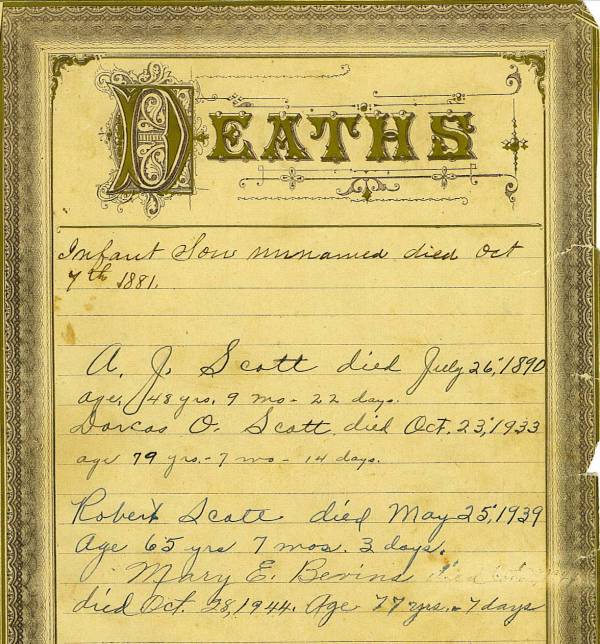 DEATHS
Infant Son unnamed died Oct
7th 1881.
A. J. Scott died July 26, 1890
age, 48 yrs. 9 mo - 22 days.
Dorcas O. Scott died Oct. 23, 1933
age 79 yrs. - 7 mo - 14 days.
Robert Scott died May 25, 1939
Age 65 yrs 7 mos. 3 days.
Mary E. Bevins died
died Oct. 28, 1944. Age 77 yrs. - 7 days